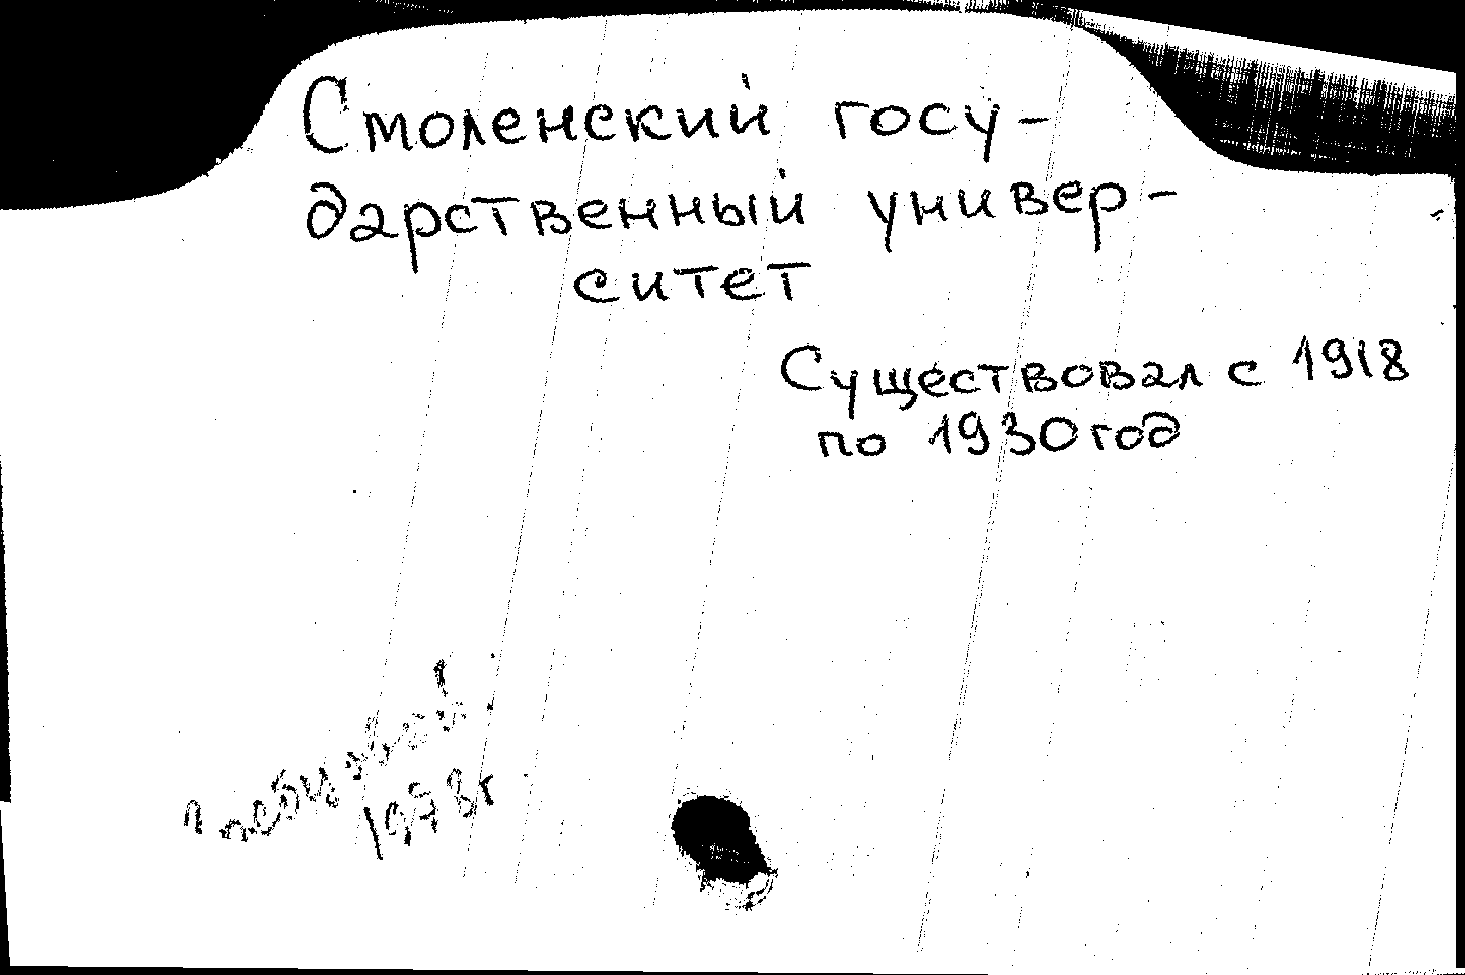 Смоленский госу-
дарственный универ-
ситет
Существовал с 1918
по 1930 год
1973г.